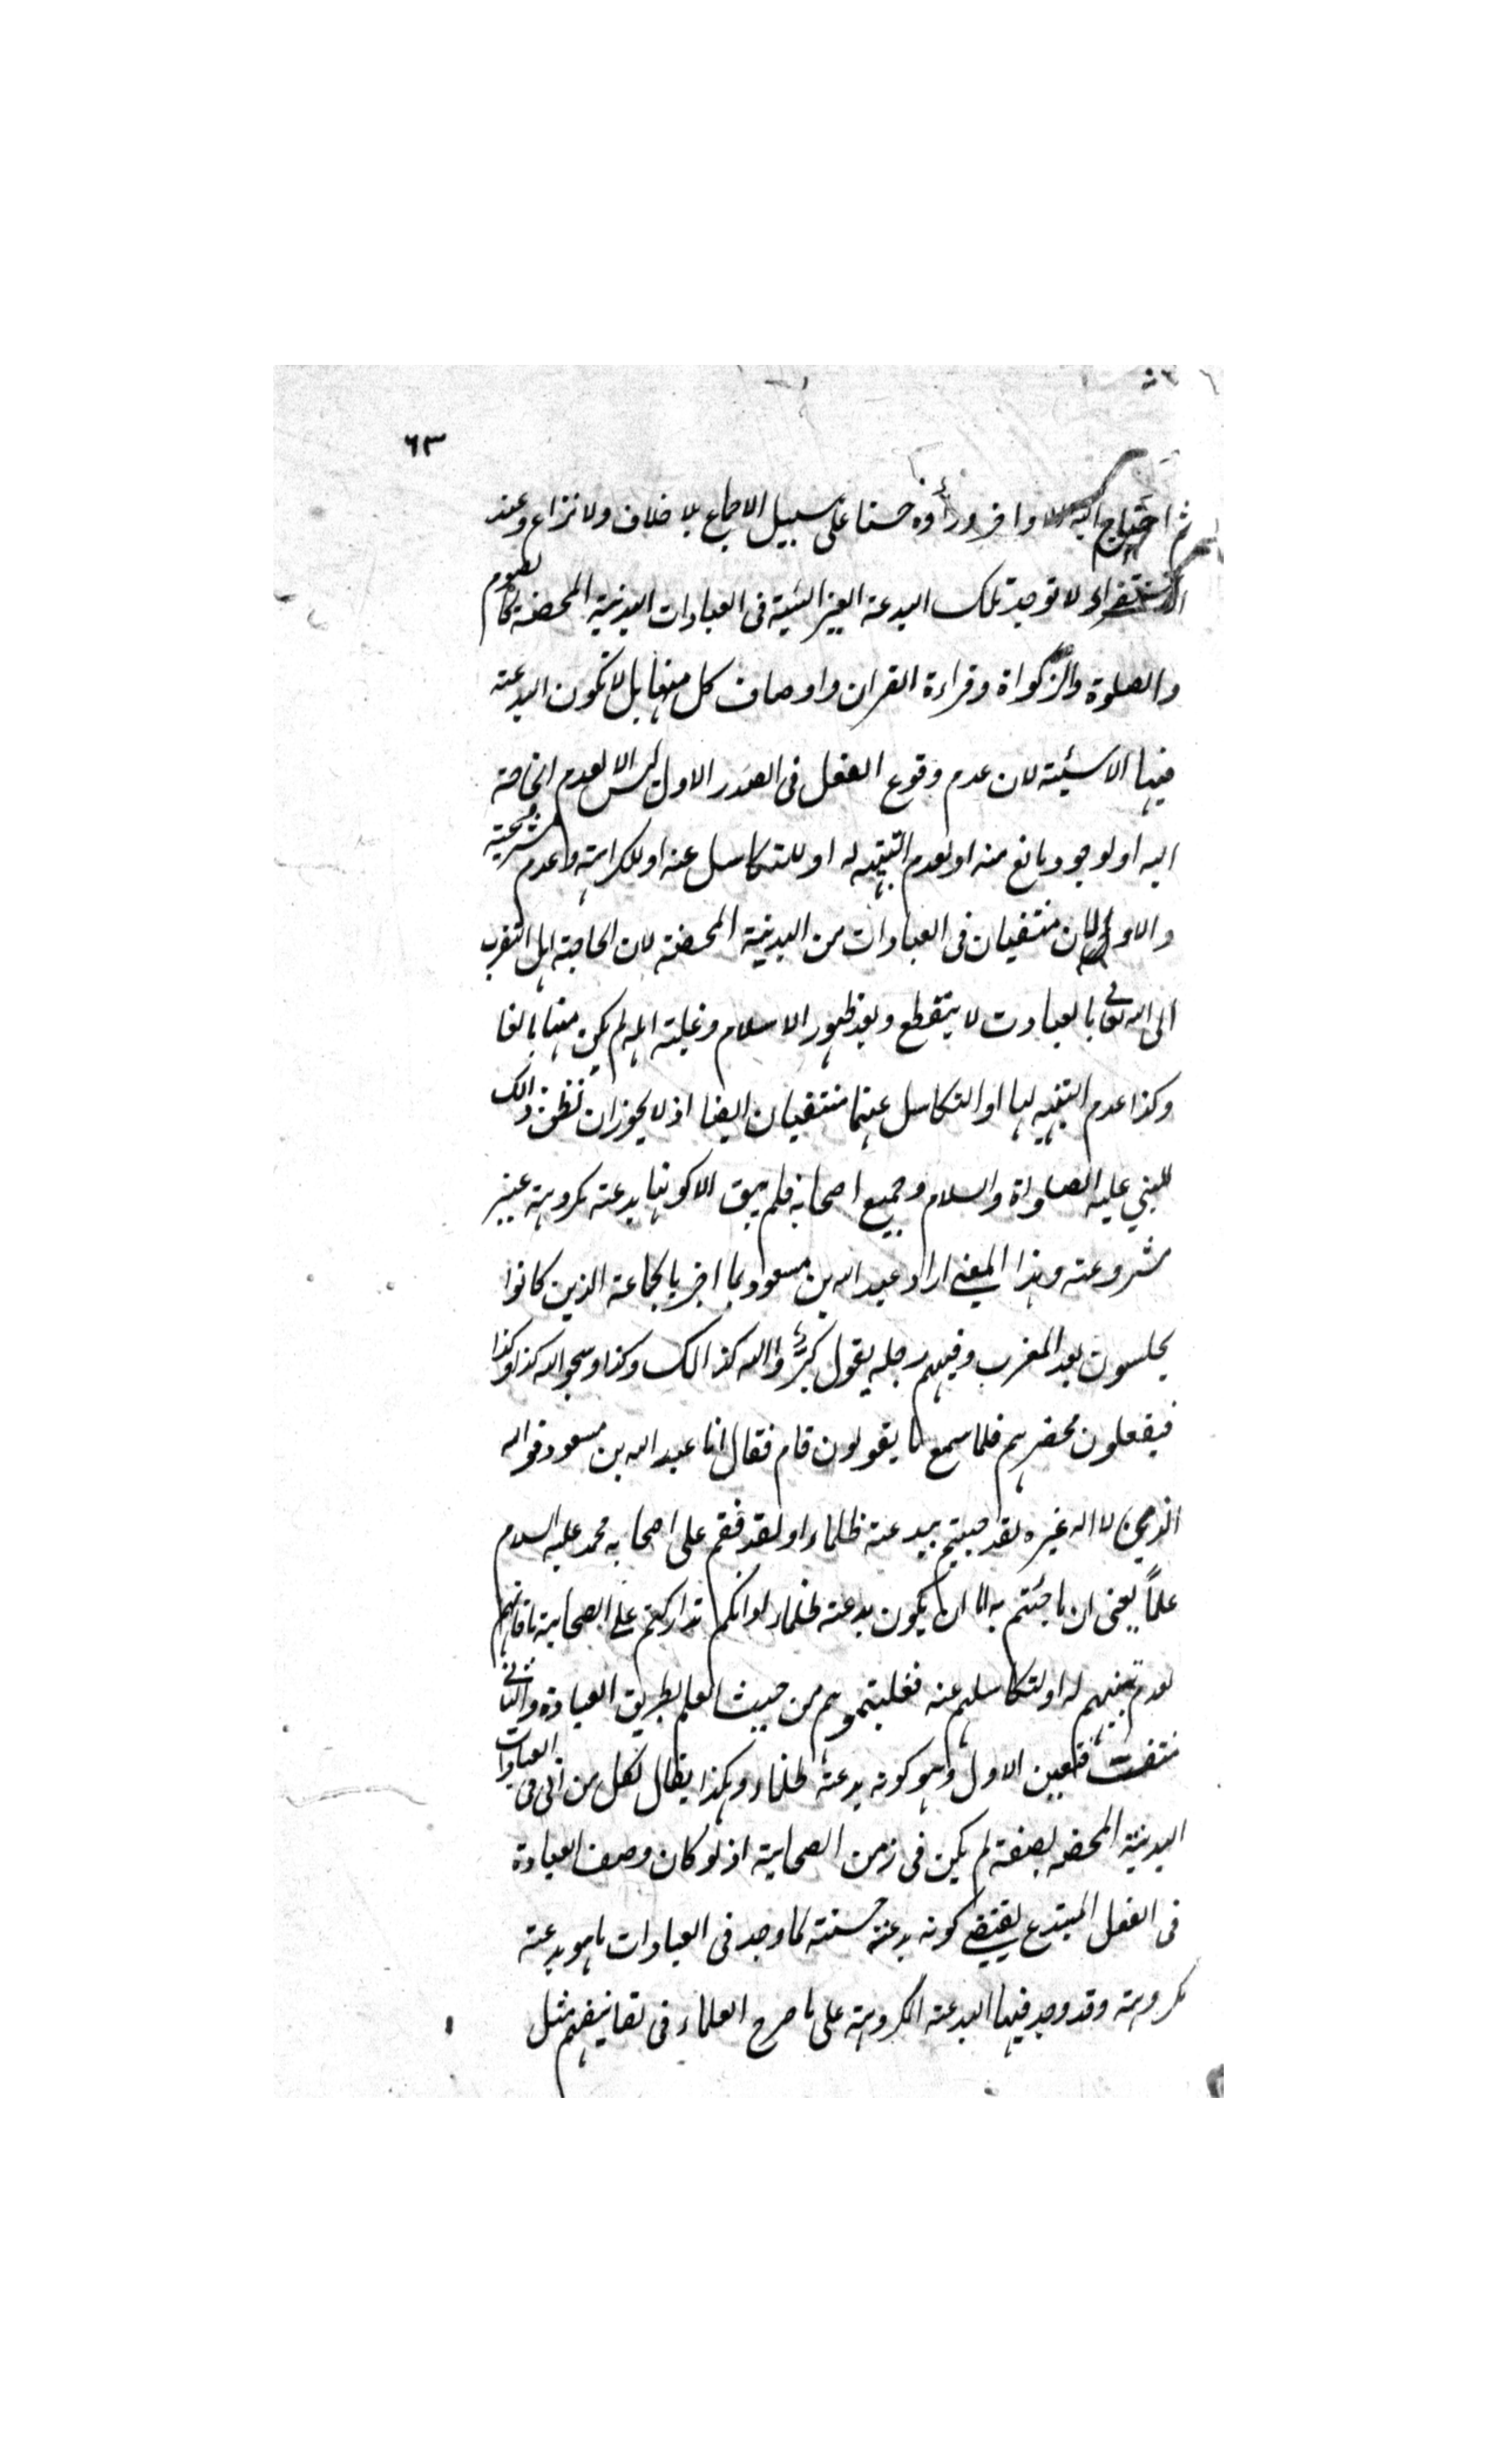 ٦٣
ثم احتاج اليه الاواخر ورأوه حسنا على سبيل الاجماع بلا خلاف ولا نزاع وعند
الاستقراء لا توجد تلك البدعة الغير السئية فى العبادات البدنية المحضة كالصوم
والصلوة والزكواة وقراءة القران واوصاف كل منها بل لا تكون البدعة
فيها الا سئية لان عدم وقوع الفعل فى الصدر الاول ليس الا لعدم الحاجة
اليه او لوجود مانع منه او لعدم التنبه له او للتكاسل عنه او للكراهة وعدم مشروعيته
والاولان منتفيان فى العبادات من البدنية المحضة لان الحاجة اهل التقرب
الى الله تعالى بالعبادت لا ينقطع وبعد ظهور الاسلام وغلبة اهله لم يكن منها مانعا
وكذا عدم التنبيه لها او التكاسل عنها منتفيان ايضا اذ لا يجوز ان نظن ذالك
للنبي عليه الصلواة والسلام وجميع اصحابه فلم يبق الا كونها بدعة مكروهة غير
مشروعة وهذا المعنى اراد عبد الله بن مسعود بما اخبر بالجماعة الذين كانوا
يجلسون بعد المغرب وفيهم رجله يقول كبّرؤا الله كذالك وكذا وسبحوا الله كذا وكذا
فيفعلون فحضرهم فلما سمع ما يقولون قام فقال انا عبد الله بن مسعود فوالله
الذى لا اله غيره لقد جيتم ببدعة ظلماء او لقد فقتم على اصحابه محمد عليه السلام
علماً يعنى ان ما جئتم به اما ان يكون بدعة ظلماء او انكم تداركتم على الصحابة ما فاتهم
لعدم تنبههم له او لتكاسلهم عنه فغلبتموهم من حيث العلم بطريق العبادة والثانى
منتف فتعين الاول وهو كونه بدعة ظلماء وهكذا يقال لكل من اتى فى العبادات
البدنية المحضه بصفة لم يكن فى زمن الصحابة اذ لو كان وصف العبادة
فى الفعل المبتدع يقتضى كونه بدعة حسنة لما وجد فى العبادات ما هو بدعة
مكروهة وقد وجد فيها البدعة المكروهة على ما صرح العلماء فى تصانيفهم مثل